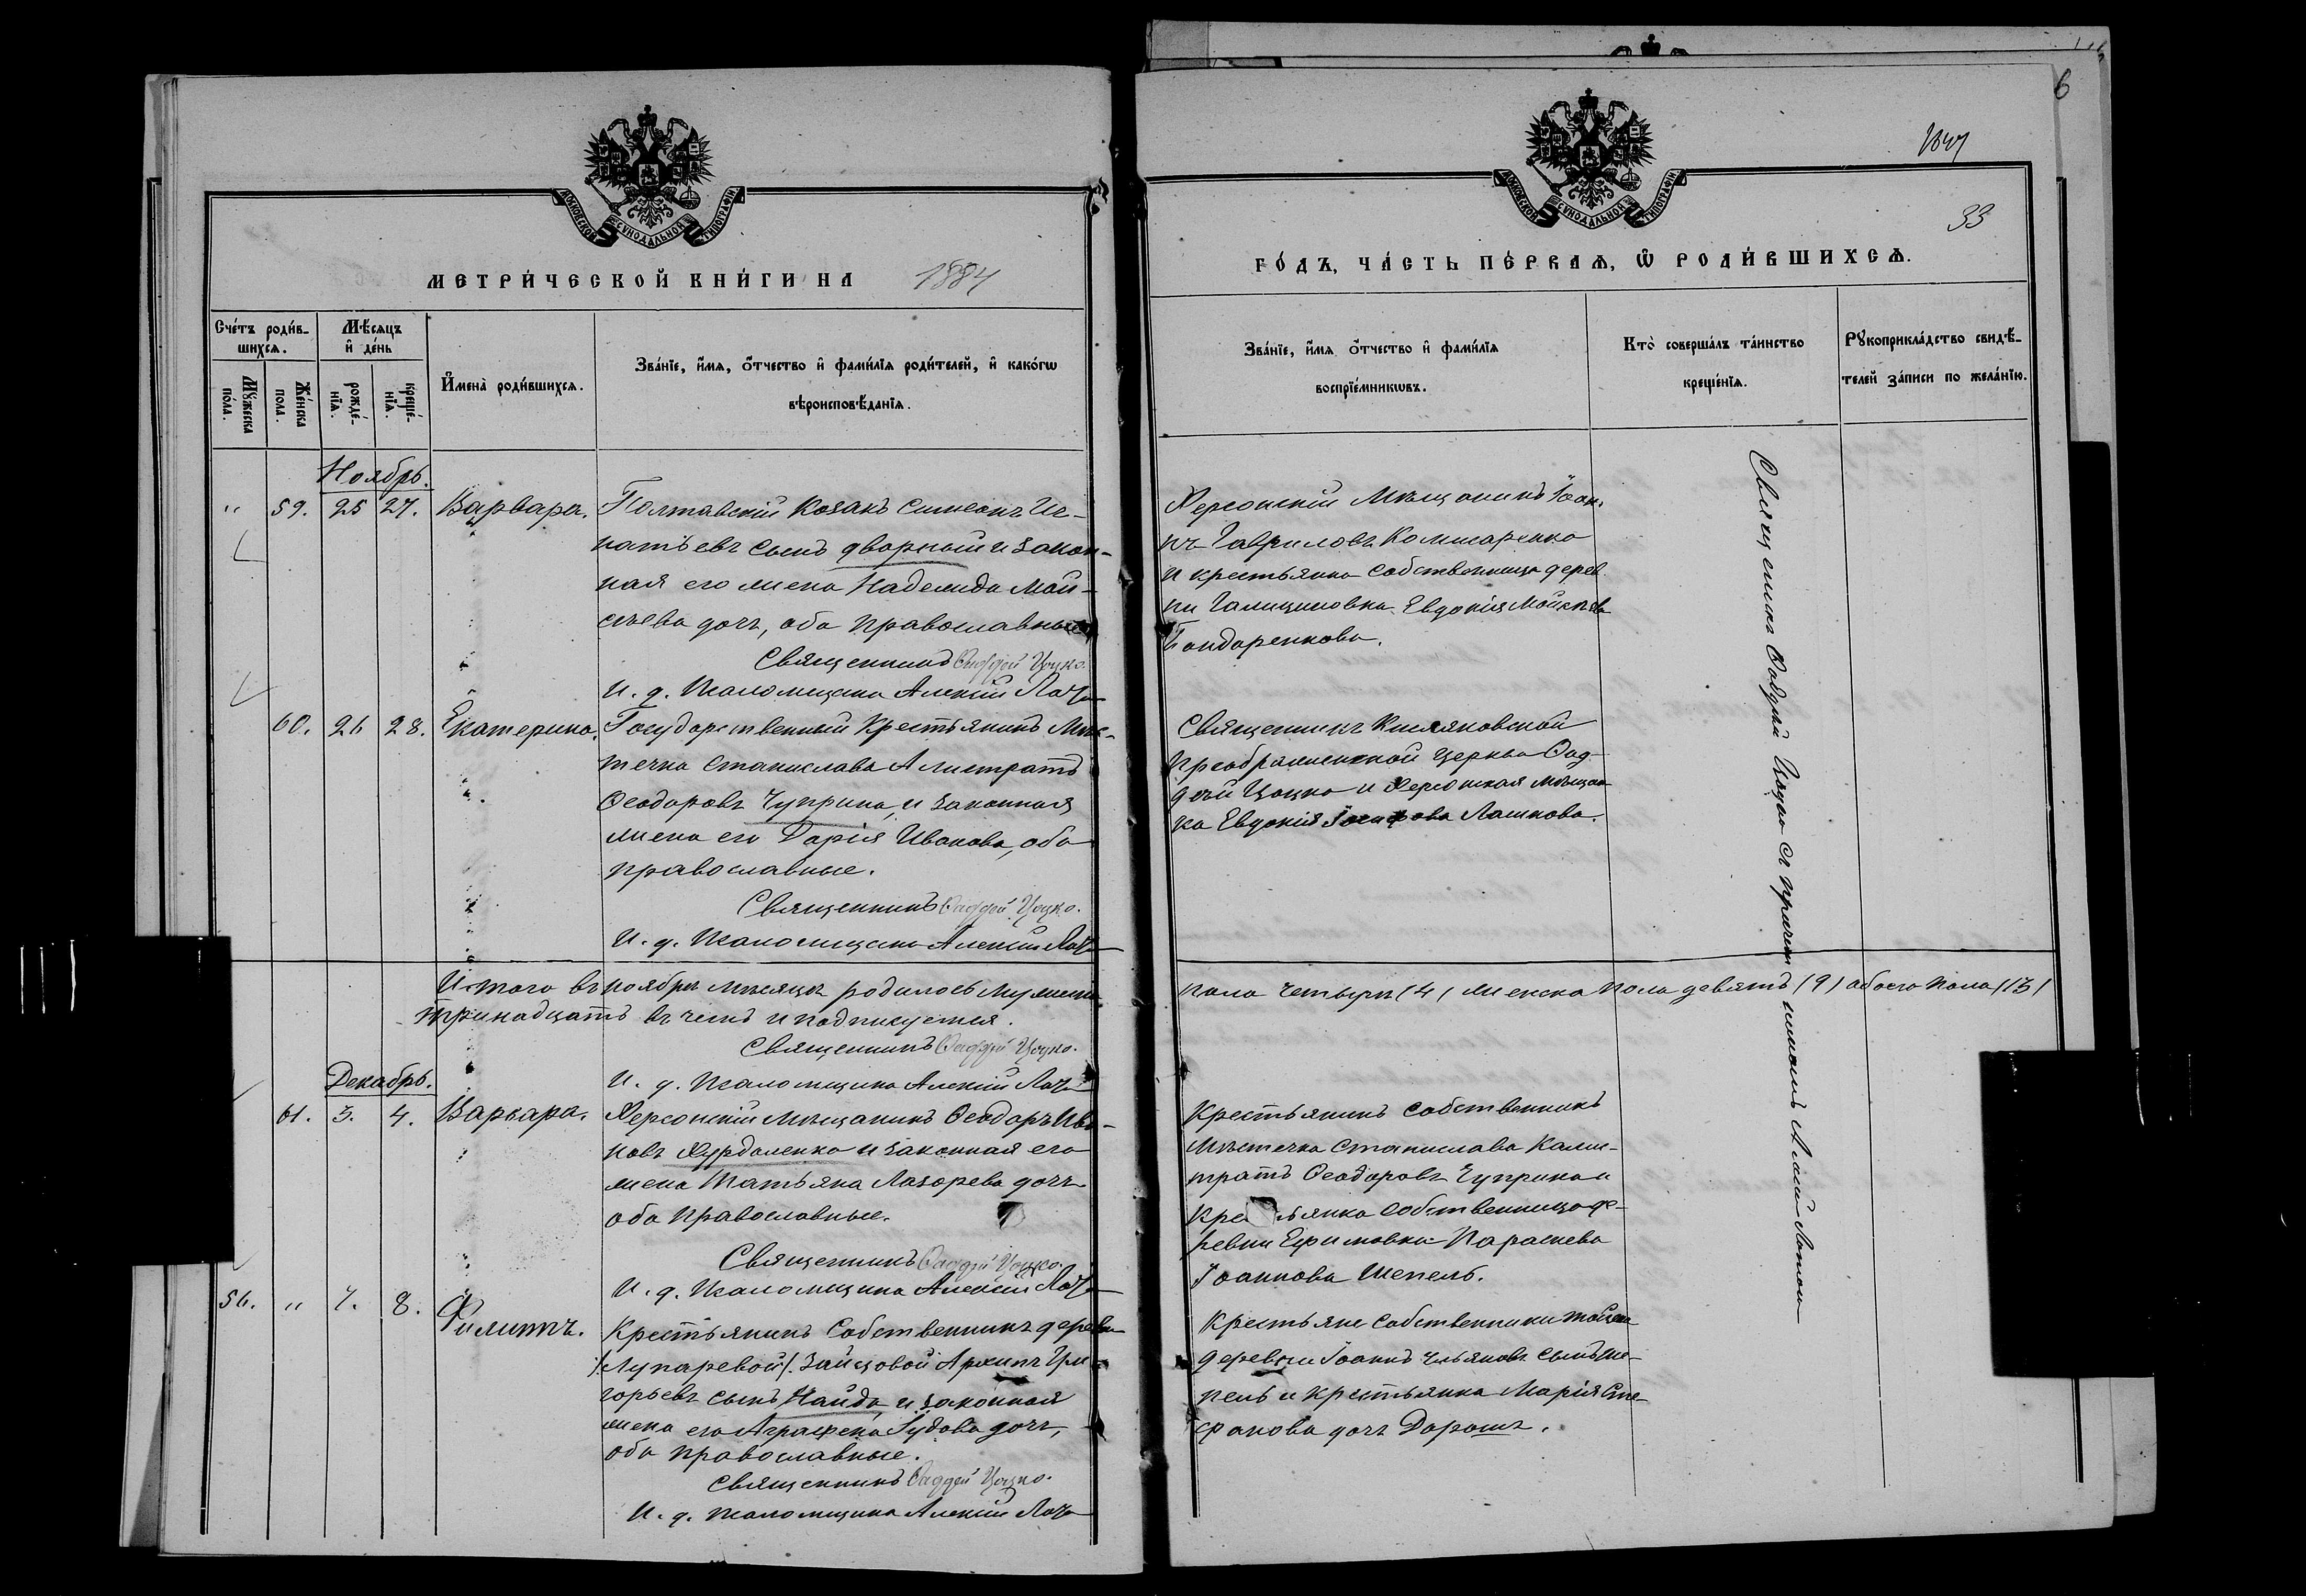 МОСКОВСКОЙ СѴНОДАЛЬНОЙ ТИПОГРАФІИ
МЕТРИ́ЧЕСКОЙ КНИ́ГИ НА 1884
Сче́тъ роди́в-
шихсѧ.
Мѣ́сѧцъ
и҆ де́нь
Мꙋжеска
по́ла.
Же́нска
пола.
рожде́-
нїѧ.
креще́-
нїѧ.
И҆мена̀ роди́вшихсѧ.
Зва́нїе, и҆́мѧ, о҆́тчество и҆ фами́лїѧ роди́телей, и҆ како́гѡ
вѣроисповѣ́данїѧ.
Ноябрь.
" 59. 25 27. Варвара. Полтавскій Козакъ Симеонъ Иг-
натьевъ сынъ дворный и закон-
ная его жена Надежда Мои-
сеева дочь, оба православные
Священникъ Ѳаддей Цоцко.
И. д. Псаломщика Алексій
60. 26 28. Екатерина. Государственный Крестьянинъ Мѣс-
течка Станислава Алистратъ
Ѳеодоровъ Чуприна, и законная
жена его Дарія Иванова, оба
православные.
Священникъ Ѳаддей Цоцко.
И. д. Псаломщика Алексій
Итого въ ноябрѣ мѣсяцѣ родилось мужеска
тринадцать въ чемъ и подписуемся.
Священникъ Ѳаддей Цоцко.
Декабрь.
И. д. Псаломщика Алексій
61. 3. 4. Варвара. Херсонскій Мѣщанинъ Ѳеодоръ Ива-
новъ Хурдаленко и законная его
жена Татьяна Лазорева дочь
оба православные.
Священникъ Ѳаддей Цоцко.
И. д. Псаломщика Алексій
56. " 7. 8. Филиппъ. Крестьянинъ Собственникъ деревни
/Лупаревой/ Зайцовой Архипъ Гри-
горьевъ сынъ Найда и законная
жена его Аграфена Іудова дочь,
оба православные.
Священникъ Ѳаддей Цоцко.
И. д. Псаломщика Алексій
6
МОСКОВСКОЙ СѴНОДАЛЬНОЙ ТИПОГРАФІИ
33
ГО́ДЪ, ЧА́СТЬ ПЕ́РВАѦ, Ѡ҆ РОДИ́ВШИХСѦ.
Зва́нїе, и҆́мѧ о҆́тчество и҆ фами́лїѧ
воспрїе́мникѡвъ.
Кто̀ соверша́лъ та́инство
креще́нїѧ.
Рꙋкоприкла́дство свидѣ́-
телей за́писи по жела́нїю.
Херсонскій Мѣщанинъ Іоан-
нъ Гавриловъ Комисаренко
и крестьянка собственница дерев
ни Галициновки Евдокія Моисѣева
Бондаренкова.
Священникъ Кисляковской
Преображенской церкви Ѳад-
дей Цоцко и Херсонская мѣщан
ка Евдокія Іосифова Лашкова.
пола четыри /4/ женска пола девять /9/ обоего пола /13/
Крестьянинъ собственникъ
Мѣстечка Станислава Калис-
тратъ Ѳеодоровъ Чуприна и
Кре ьянка собственница де-
ревни Ефимовки Параскева
Іоаннова Шепель.
Крестьяне собственники тойже
деревни Іоаннъ Ульяновъ сынъ Ше-
пель и крестьянка Марія Сте-
фанова дочь Дорошъ.
Священникъ Ѳаддей Цоцко съ причетникомъ